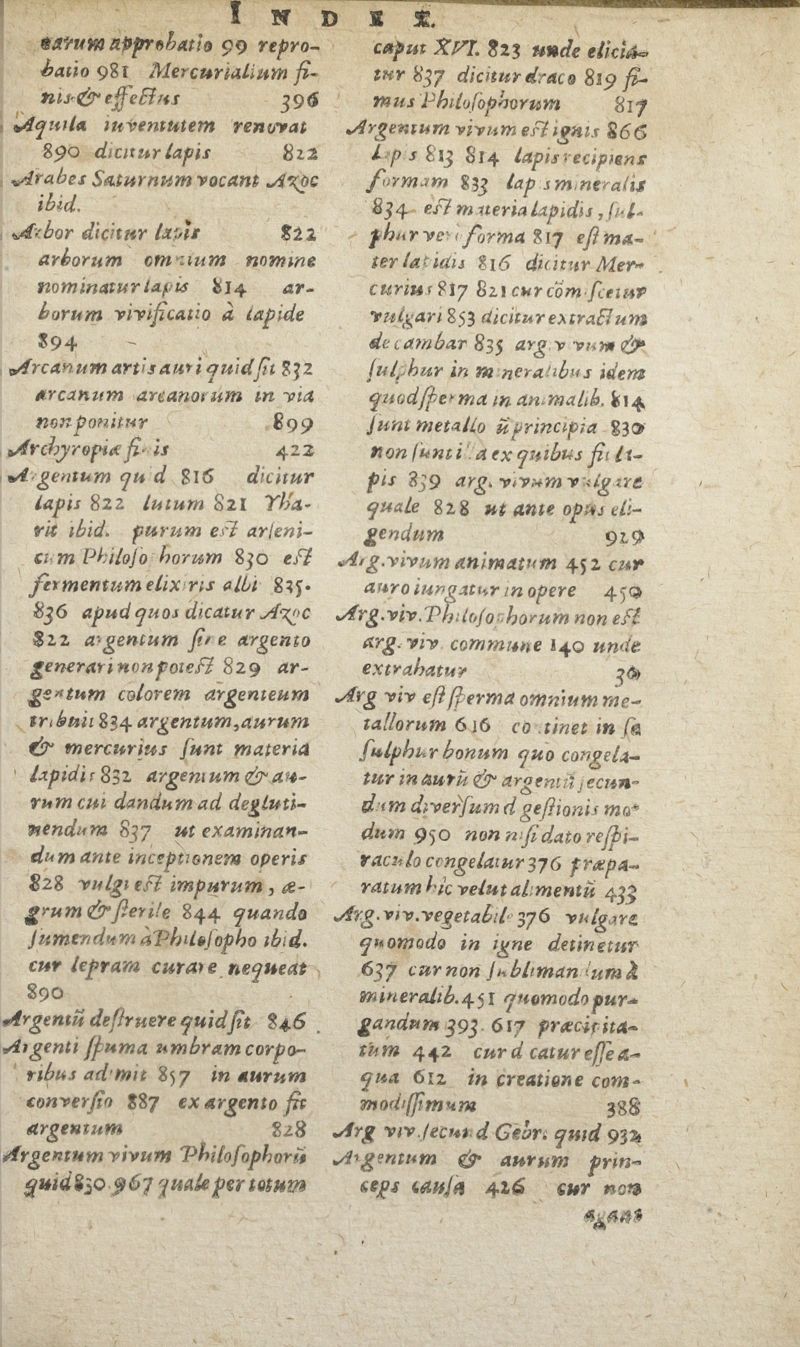 INDEX.
earum approbatio 99 repro-
batio 981 Mercurialium fi-
nis & effectus 396
Aquila iuventutem renovat
890 dicitur lapis 822
Arabes Saturnum vocant Azoc
ibid.
Arbor dicitur lapis 822
arborum omnium nomine
nominatur lapis 814 ar-
borum vivificatio à lapide
894
Arcanum artis auri quid ſit 832
arcanum arcanorum in via
non ponitur 899
Archyropiæ fi is 422
Argentum qu d 816 dicitur
lapis 822 lutum 821 Yha-
rit ibid. purum eſt arſeni-
cum Philoſo horum 830 eſt
fermentum elixiris albi 835.
836 apud quos dicatur Azoc
822 argentum ſine argento
generari non poteſt 829 ar-
gentum colorem argenteum
tribuit 834 argentum, aurum
& mercurius ſunt materia
lapidis 832 argentum & au-
rum cui dandum ad degluti-
nendum 837 ut examinan-
dum ante inceptionem operis
828 vulgi eſt impurum, æ-
grum & ſterile 844 quando
ſumendum à Philoſopho ibid.
cur lepram curare nequeat
890
Argentū deſtruere quid ſit 846
Argenti ſpuma umbram corpo-
ribus adimit 857 in aurum
converſio 887 ex argento fit
argentum 828
Argentum vivum Philoſophorū
quid 830. 967 quale per totum
caput XVI. 823 unde elicia-
tur 837 dicitur draco 819 fi-
mus Philoſophorum 817
Argentum vivum eſt ignis 866
L p s 813 814 lapis recipiens
formam 833 lap s mineralis
834 eſt materia lapidis, ſul-
phur vero forma 817 eſt ma-
ter lapidis 816 dicitur Mer-
curius 817 821 cur com ſcetur
vulgari 853 dicitur extractum
de cambar 835 arg v vum &
ſulphur in mineralibus idem
quod ſperma in animalib. 814
ſunt metallo ū principia 830
non ſunt i a ex quibus fit la-
pis 839 arg. vivum vulgare
quale 828 ut ante opus eli-
gendum 929
Arg. vivum animatum 452 cur
auro iungatur in opere 450
Arg. viv. Philoſophorum non eſt
arg. viv commune 140 unde
extrahatur
Arg viv eſt ſperma omnium me-
tallorum 616 co tinet in ſe
ſulphur bonum quo congela-
tur in aurū & argentū ſecun-
dum diverſum d geſtionis mo-
dum 950 non niſi dato reſpi-
raculo congelatur 376 præpa-
ratum hic velut alimentū 433
Arg. viv. vegetabil 376 vulgare
quomodo in igne detinetur
637 cur non ſublimandum à
mineralib. 451 quomodo pur-
gandum 393. 617 præcipita-
tum 442 cur d catur eſſe a-
qua 612 in creatione com-
modiſſimum 388
Arg viv. ſecund Gebr. quid 932
Argentum & aurum prin-
ceps cauſa 426 cur non
agant